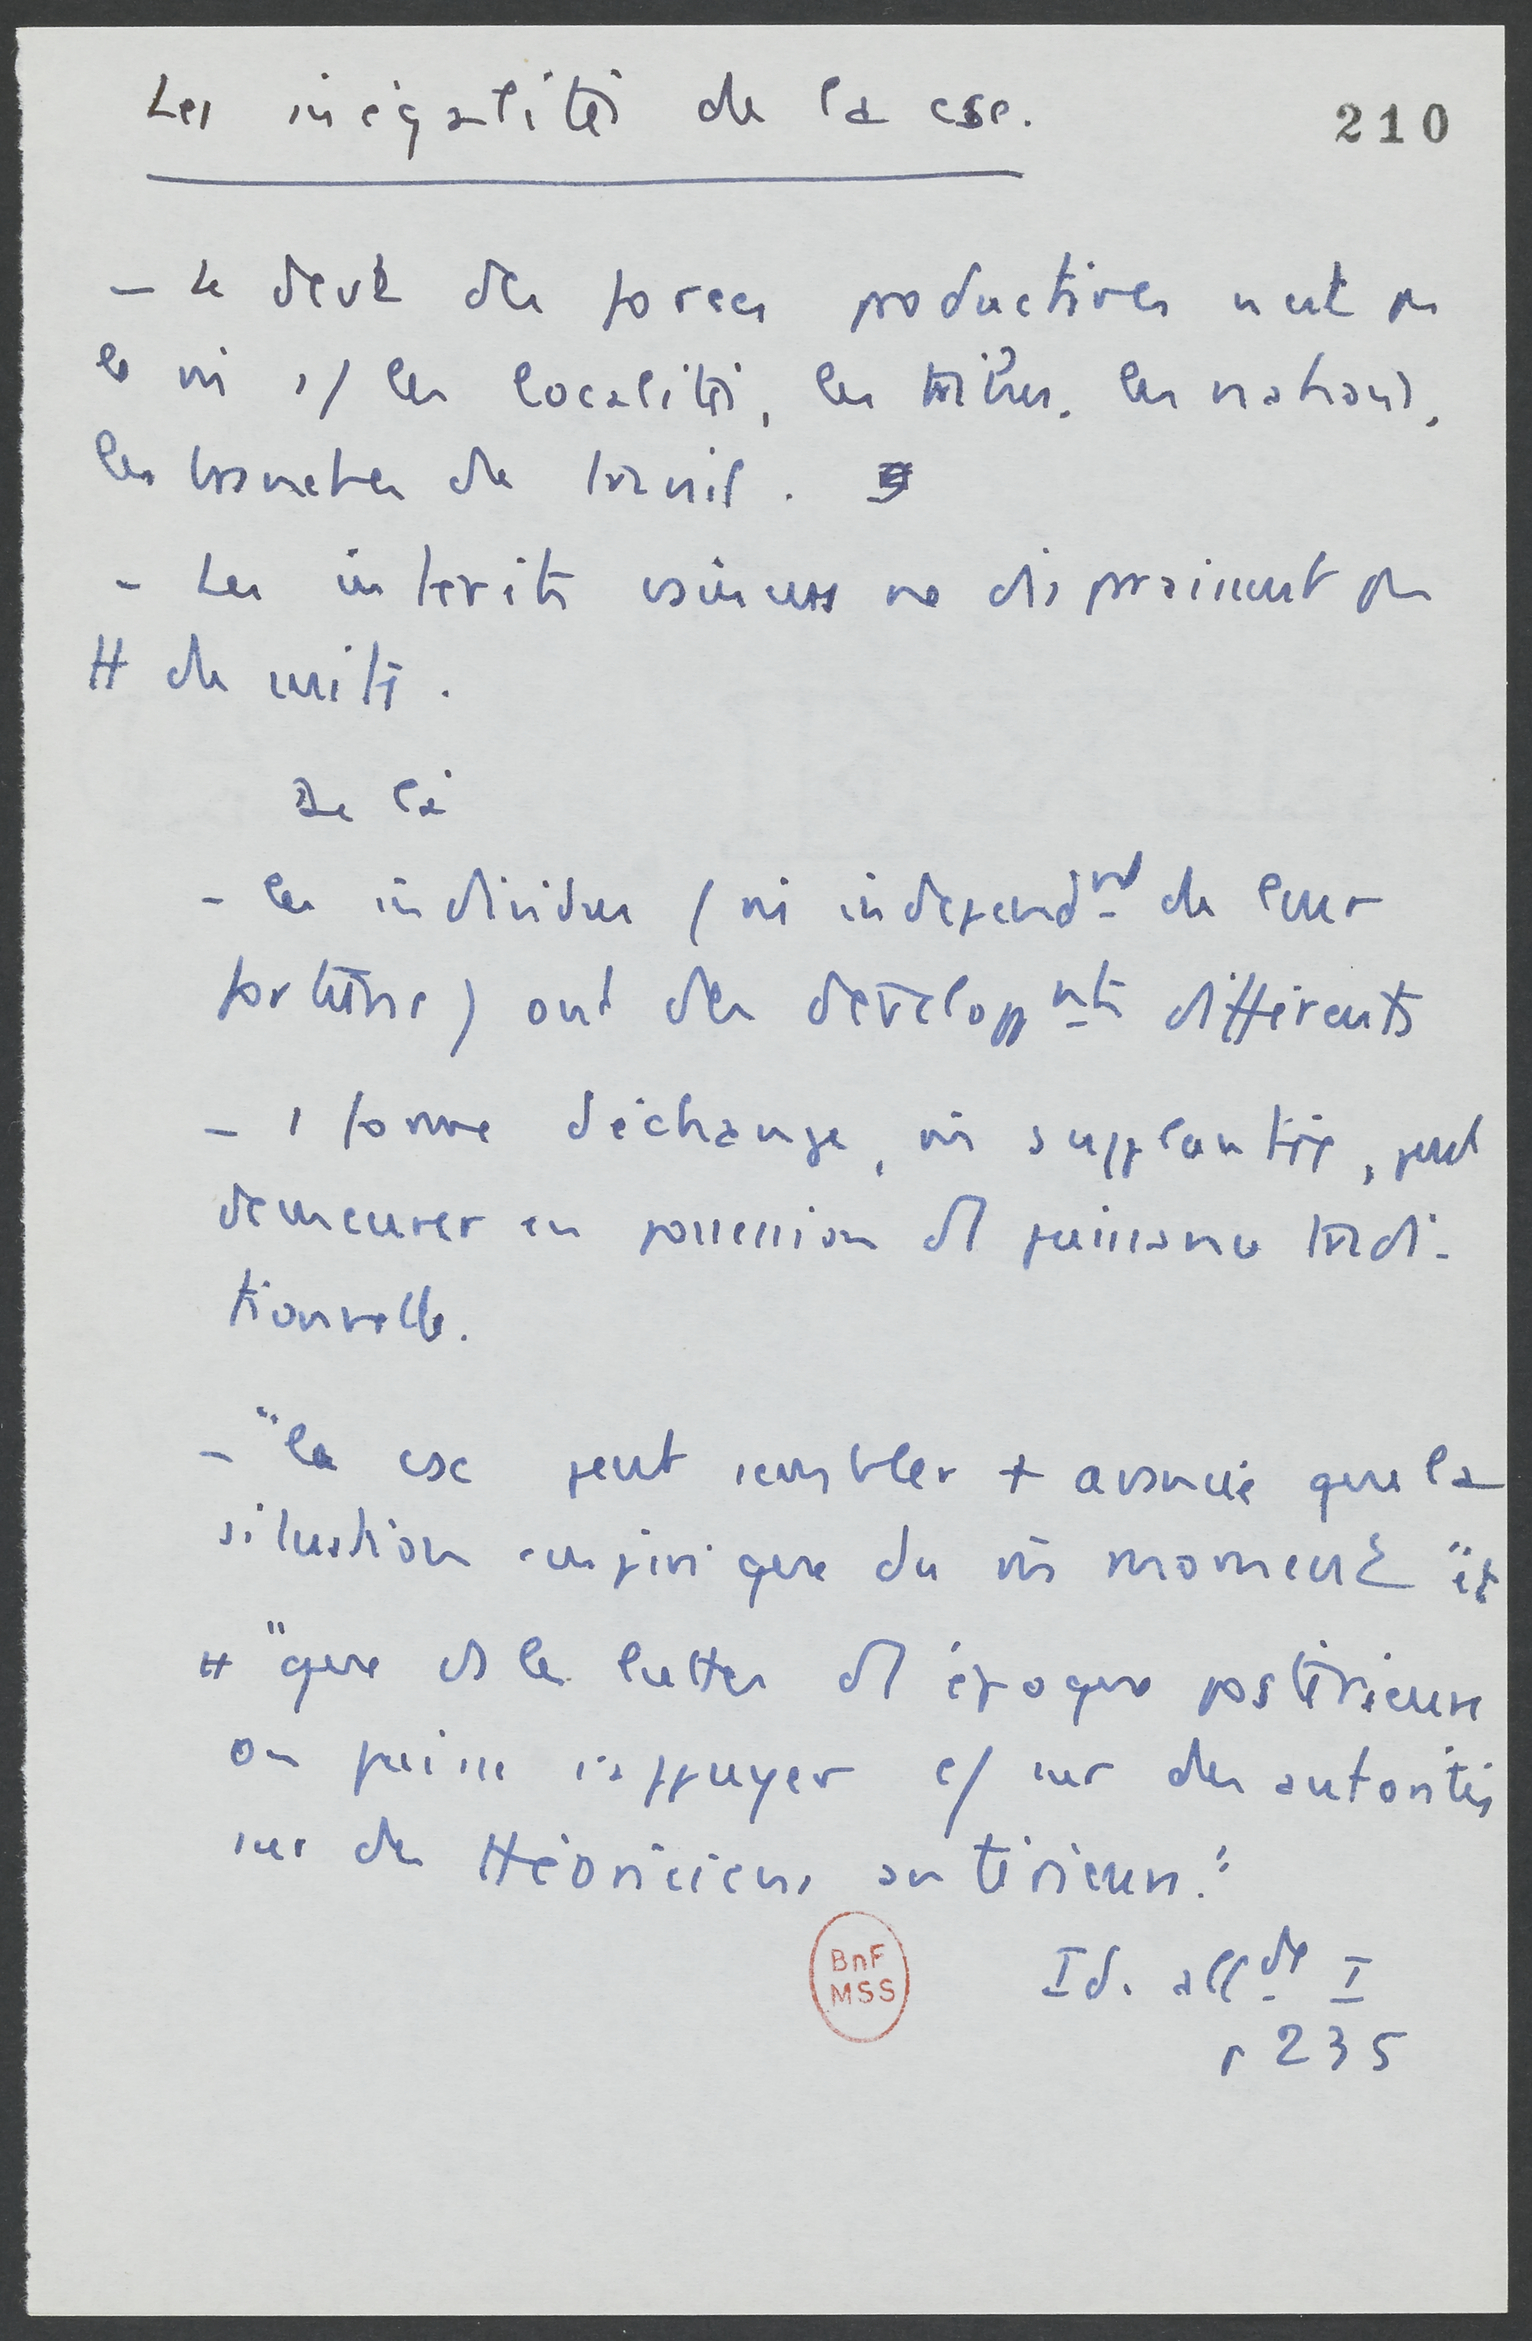 Les inégalités de la csce.
210
- Le devt des forces productives n'est pas
le m̂ s/ les localités, les tribus, les nations,
les branches de travail.
- Les intérêts vaincus ne disparaissent pas
tt de suite.
De là
- les individus (m̂ indépendnt de leur
fortune) ont des développnts différents
- 1 forme d'échange, m̂ supplantée, peut
demeurer en possession d' puissance tradi-
tionnelle.
- "la csc peut sembler + avancée que la
situation empirique du m̂ moment" et
"que ds les luttes d' époque postérieure
on puisse s'appuyer c/ sur des autorités
sur des théoriciens antérieurs."
BnF
MSS
Id. allde I
p 235